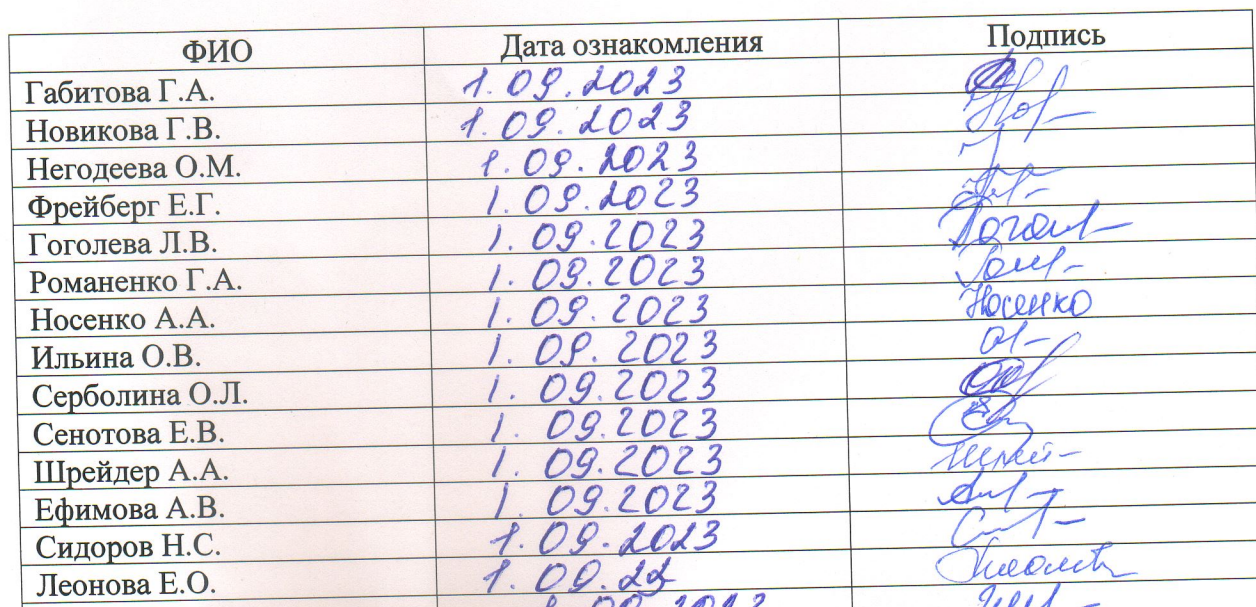 ФИО Дата ознакомления Подпись
Габитова Г.А. 1.09.2023
Новикова Г.В. 1.09.2023
Негодеева О.М. 1.09.2023
Фрейберг Е.Г. 1.09.2023
Гоголева Л.В. 1.09.2023
Романенко Г.А. 1.09.2023
Носенко А.А. 1.09.2023 Носенко
Ильина О.В. 1.09.2023
Серболина О.Л. 1.09.2023
Сенотова Е.В. 1.09.2023
Шрейдер А.А. 1.09.2023
Ефимова А.В. 1.09.2023
Сидоров Н.С. 1.09.2023
Леонова Е.О.